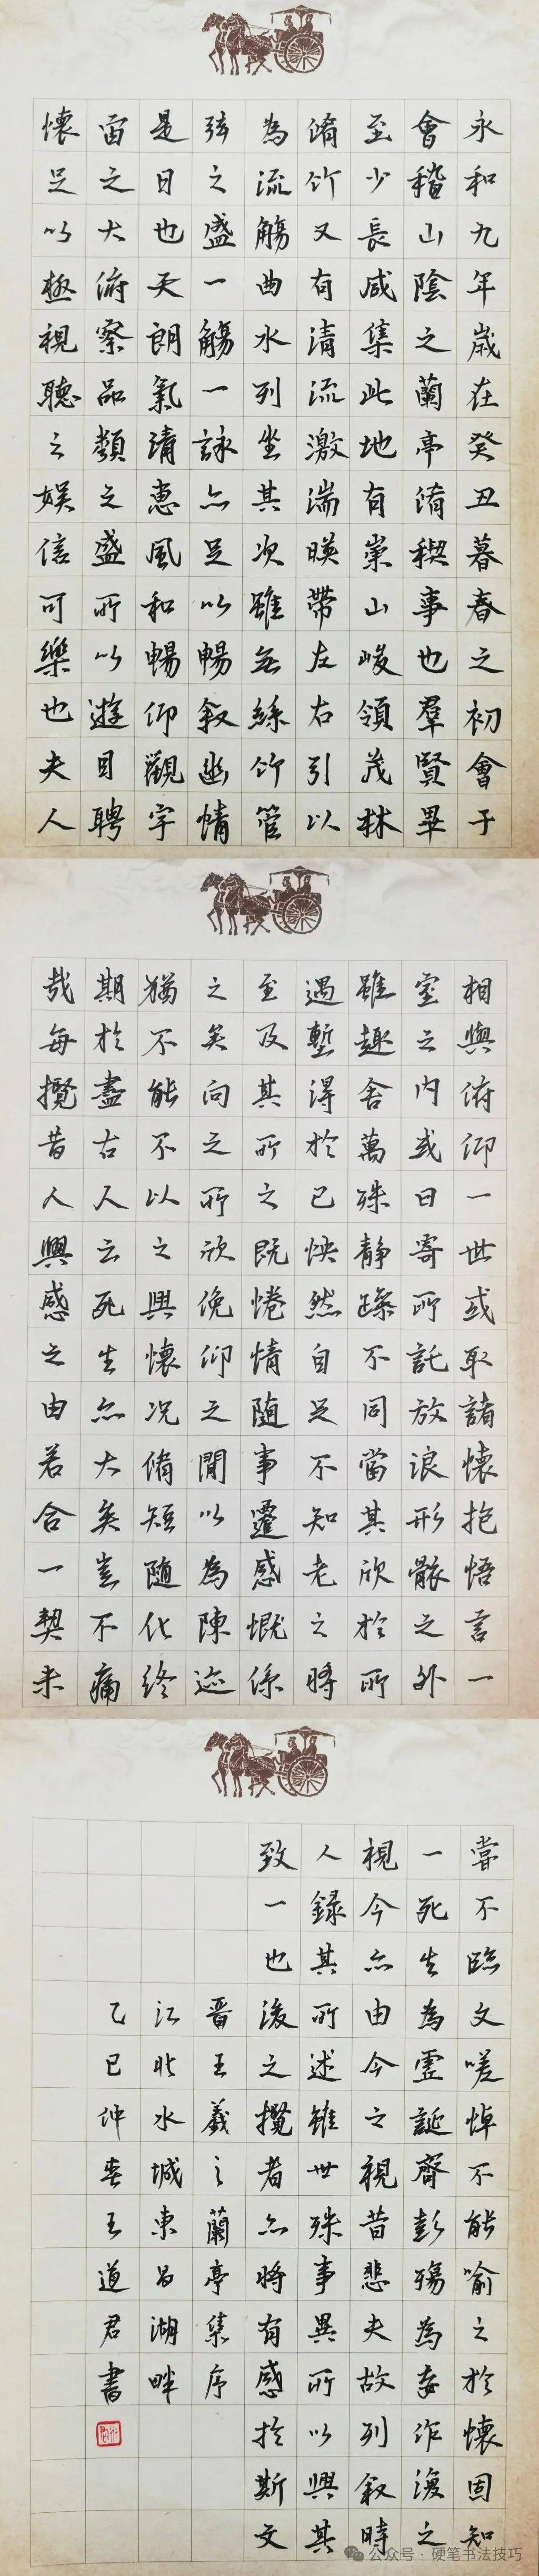 永和九年歲在癸丑暮春之初會于
會稽山陰之蘭亭脩稧事也羣賢畢
至少長咸集此地有崇山峻領茂林
脩竹又有清流激湍暎帶左右引以
為流觴曲水列坐其次雖無絲竹管
弦之盛一觴一詠亦足以暢敘幽情
是日也天朗氣清惠風和暢仰觀宇
宙之大俯察品類之盛所以遊目聘
懷足以極視聽之娛信可樂也夫人
相與俯仰一世或取諸懷抱悟言一
室之內或曰寄所託放浪形骸之外
雖趣舍萬殊静躁不同當其欣於所
遇蹔得於己怏然自足不知老之將
至及其所之既惓情随事遷感慨係
之矣向之所欣俛仰之閒以為陳迹
猶不能不以之興懷況脩短随化終
期於盡古人云死生亦大矣豈不痛
哉每攬昔人興感之由若合一契未
嘗不臨文嗟悼不能喻之於懷固知
一死生為虛誕齊彭殤為妄作後之
視今亦由今之視昔悲夫故列敘時
人錄其所述雖世殊事異所以興其
致一也後之攬者亦將有感於斯文
晋王羲之蘭亭集序
江北水城東昌湖畔
乙巳仲春王道君書
公众号·硬笔书法技巧